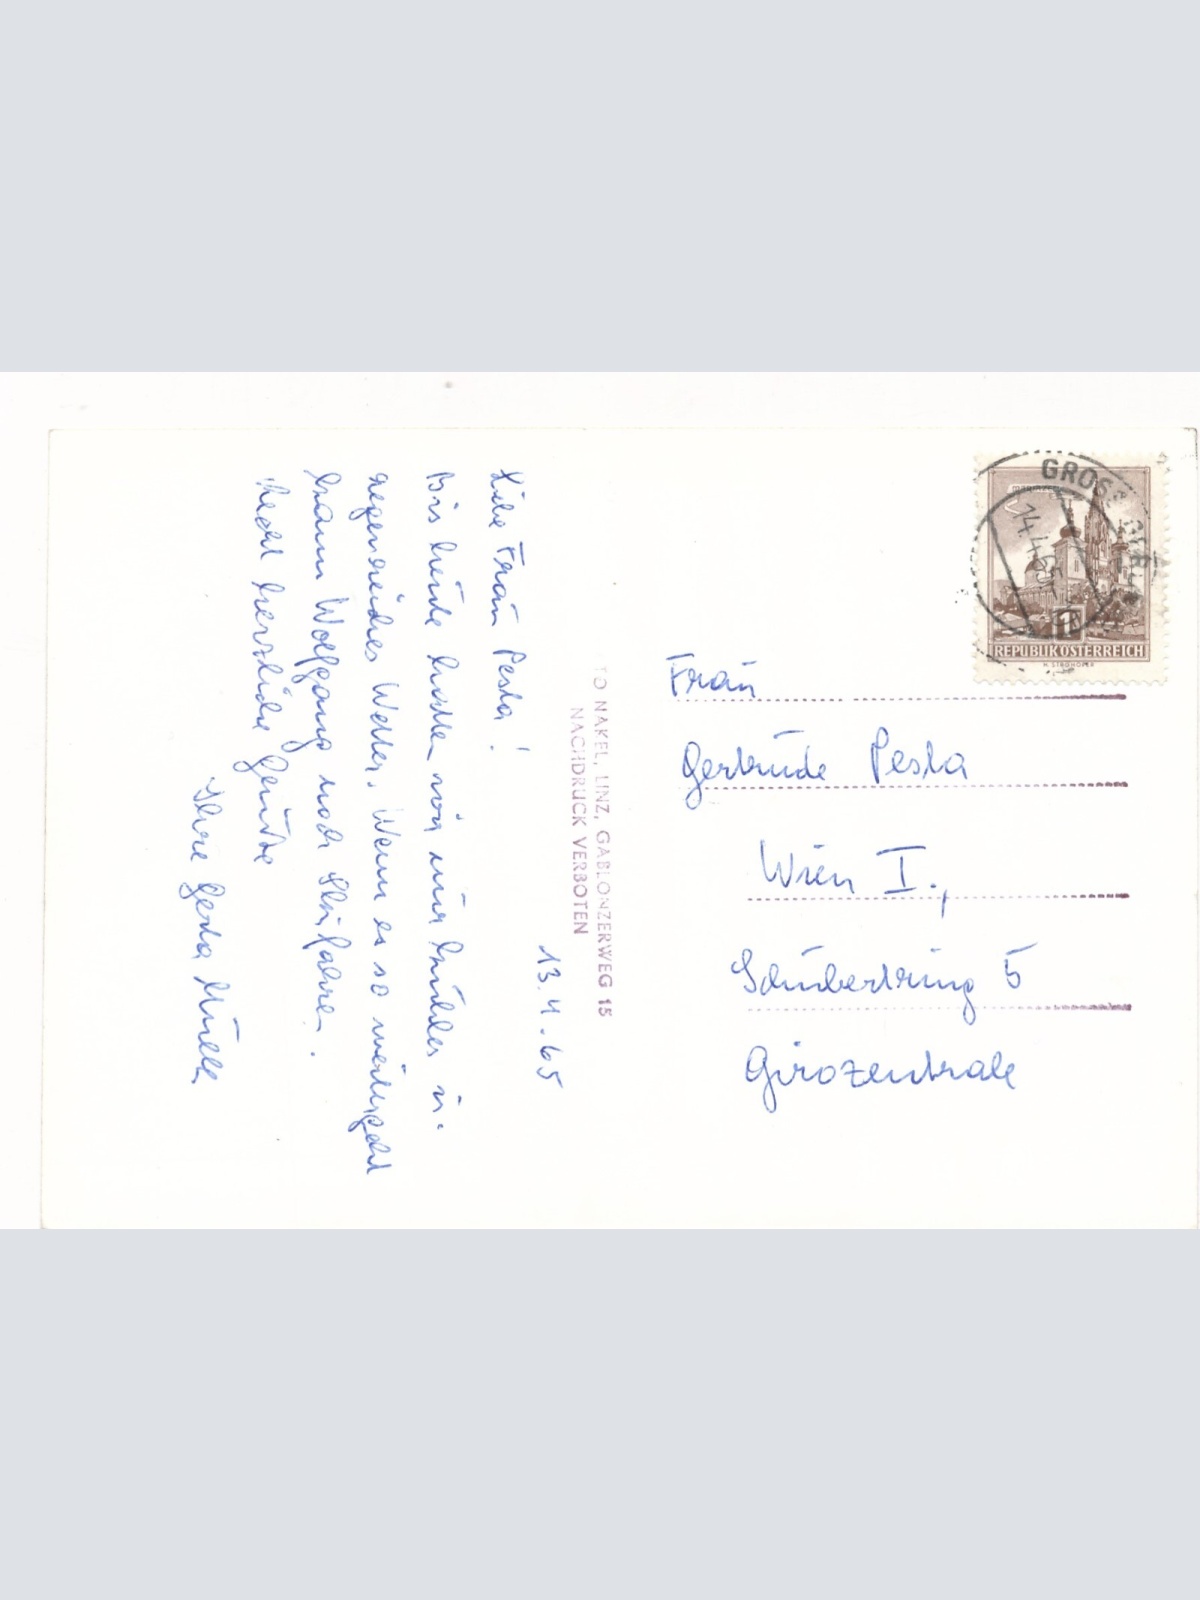 13.4.65
Liebe Frau Pesta!
Bis heute hatten wir nur trübes u.
regnerisches Wetter. Wenn es so weitergeht
kann Wolfgang noch Ski fahren.
Recht herzliche Grüße
Ihre Gerta
TO NAKEL, LINZ, GABLONZERWEG 15
NACHDRUCK VERBOTEN
GROSS
14.4.65
REPUBLIK ÖSTERREICH
Frau
Gertrude Pesta
Wien I.,
Schubertring 5
Girozentrale